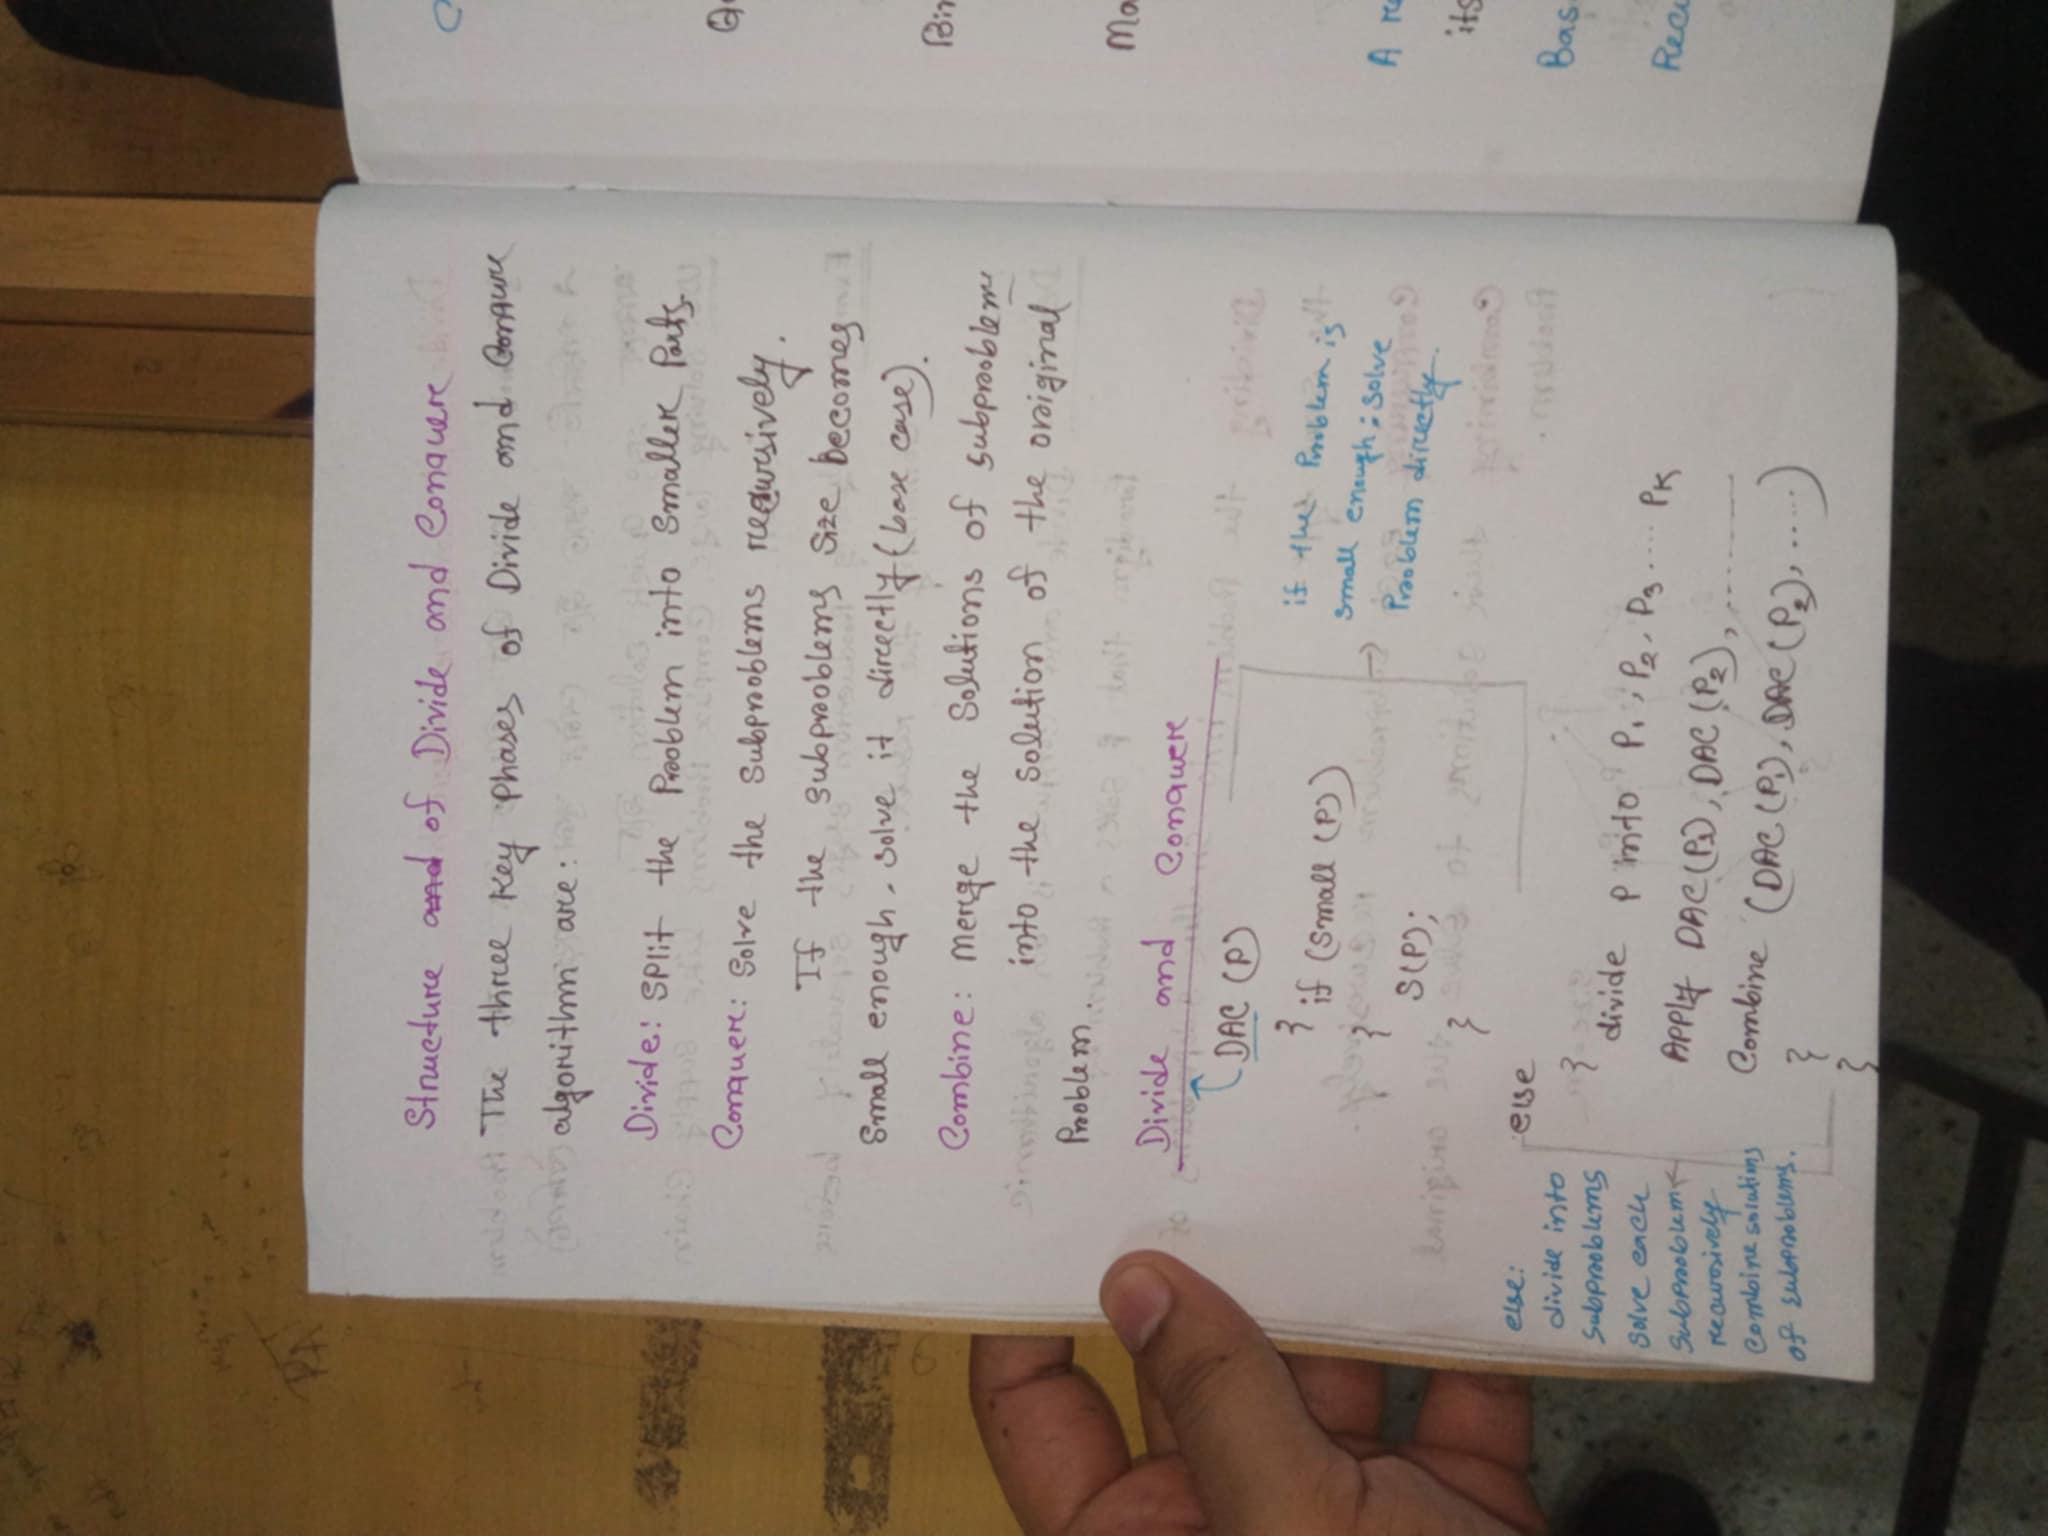 Structure and of Divide and Conquere
The three key phases of Divide and Conqure
algorithm are:
Divide: Split the Problem into Smaller Parts
Conquer: Solve the Subproblems recursively.
If the subproblems size becomes
Small enough, solve it directly (base case).
Combine: Merge the Solutions of subproblems
into the solution of the original
Problem.
Divide and Conquere
DAC (P)
{
if (Small (P))
{
S(P);
}
if the Problem is
small enough; solve
Problem directly.
else
{
divide P into P1, P2, P3 .... PK
Apply DAC(P1), DAC (P2), ............
Combine (DAC (P1), DAC (P2), .....)
}
}
else:
divide into
Subproblems
Solve each
Subproblem
recursively
Combine solutions
of subproblems.
C
Bin
Ma
A re
its
Bas
Recu